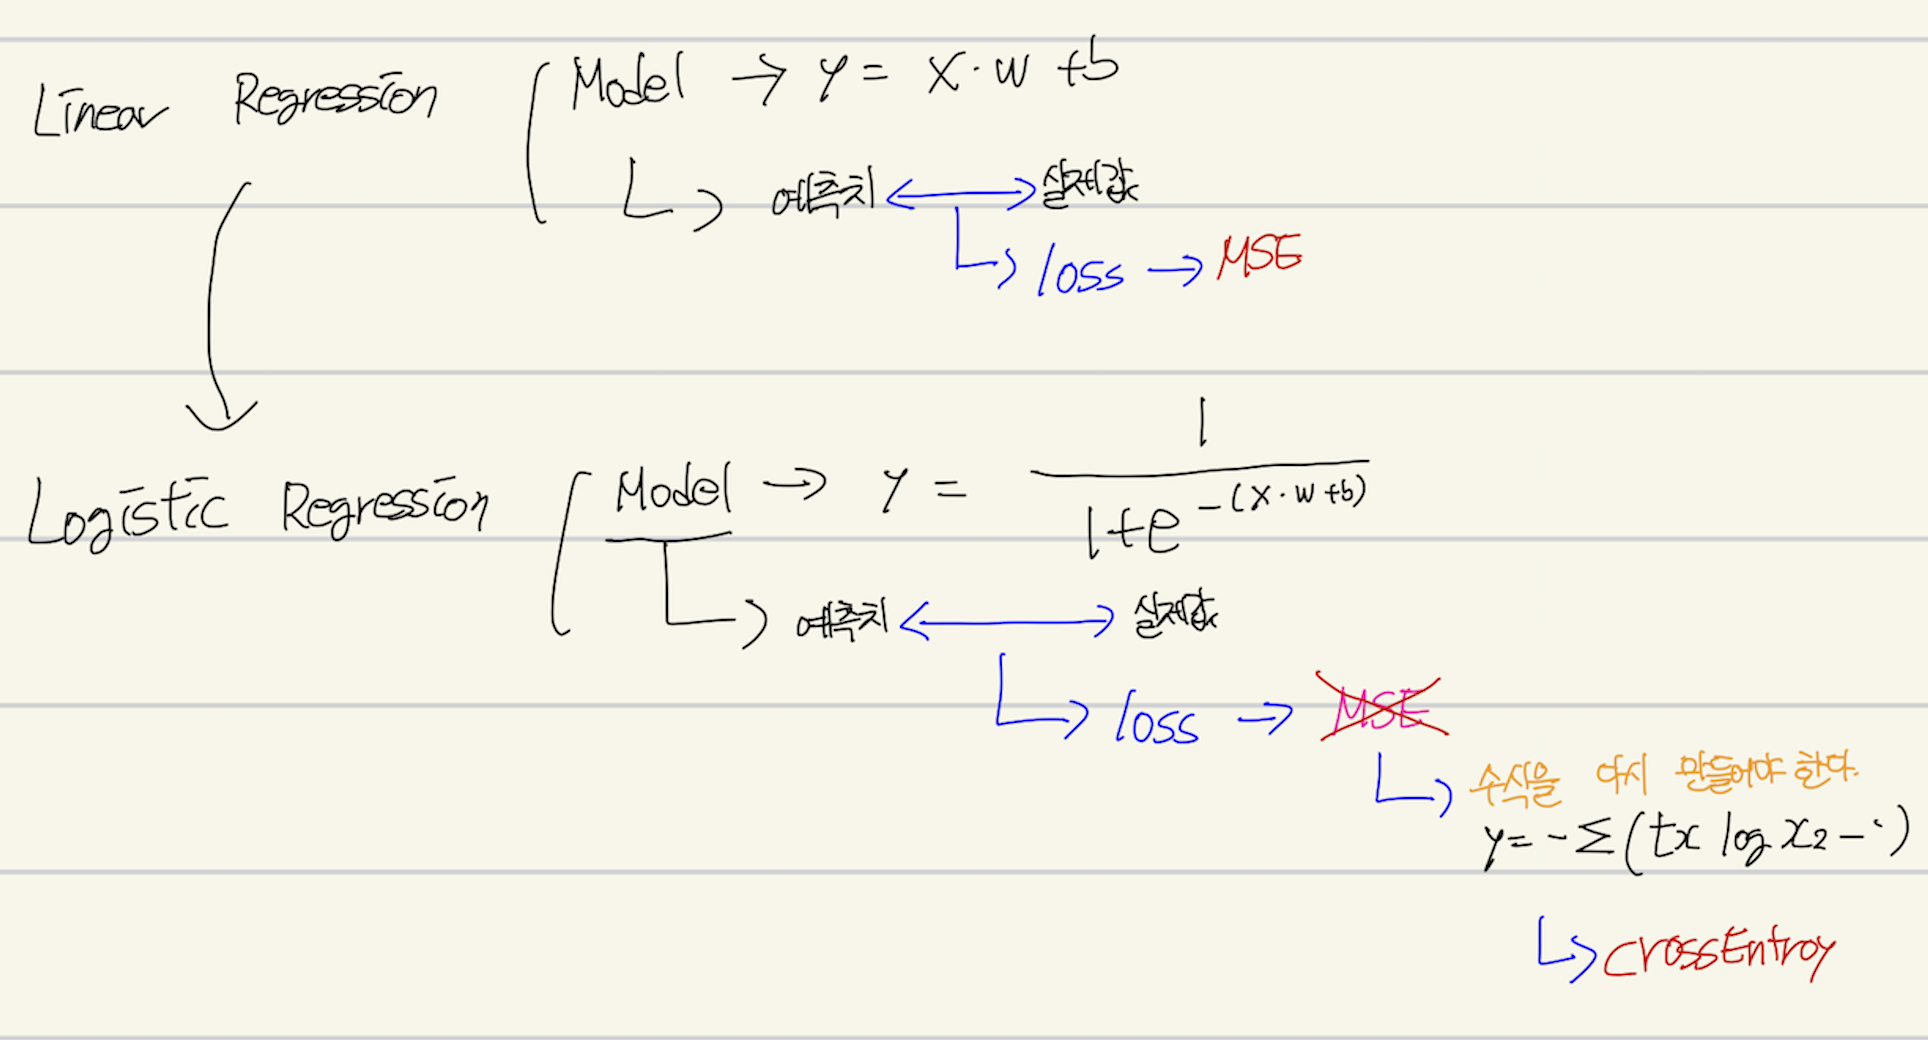 Linear Regression Model → y = x·w+b
예측치 ↔ 실제값
loss → MSE
Logistic Regression Model → y = 1 / 1+e^-(x·w+b)
예측치 ↔ 실제값
loss → MSE
수식을 다시 만들어야 한다.
y = -Σ(tx log x2 - ·)
CrossEntroy